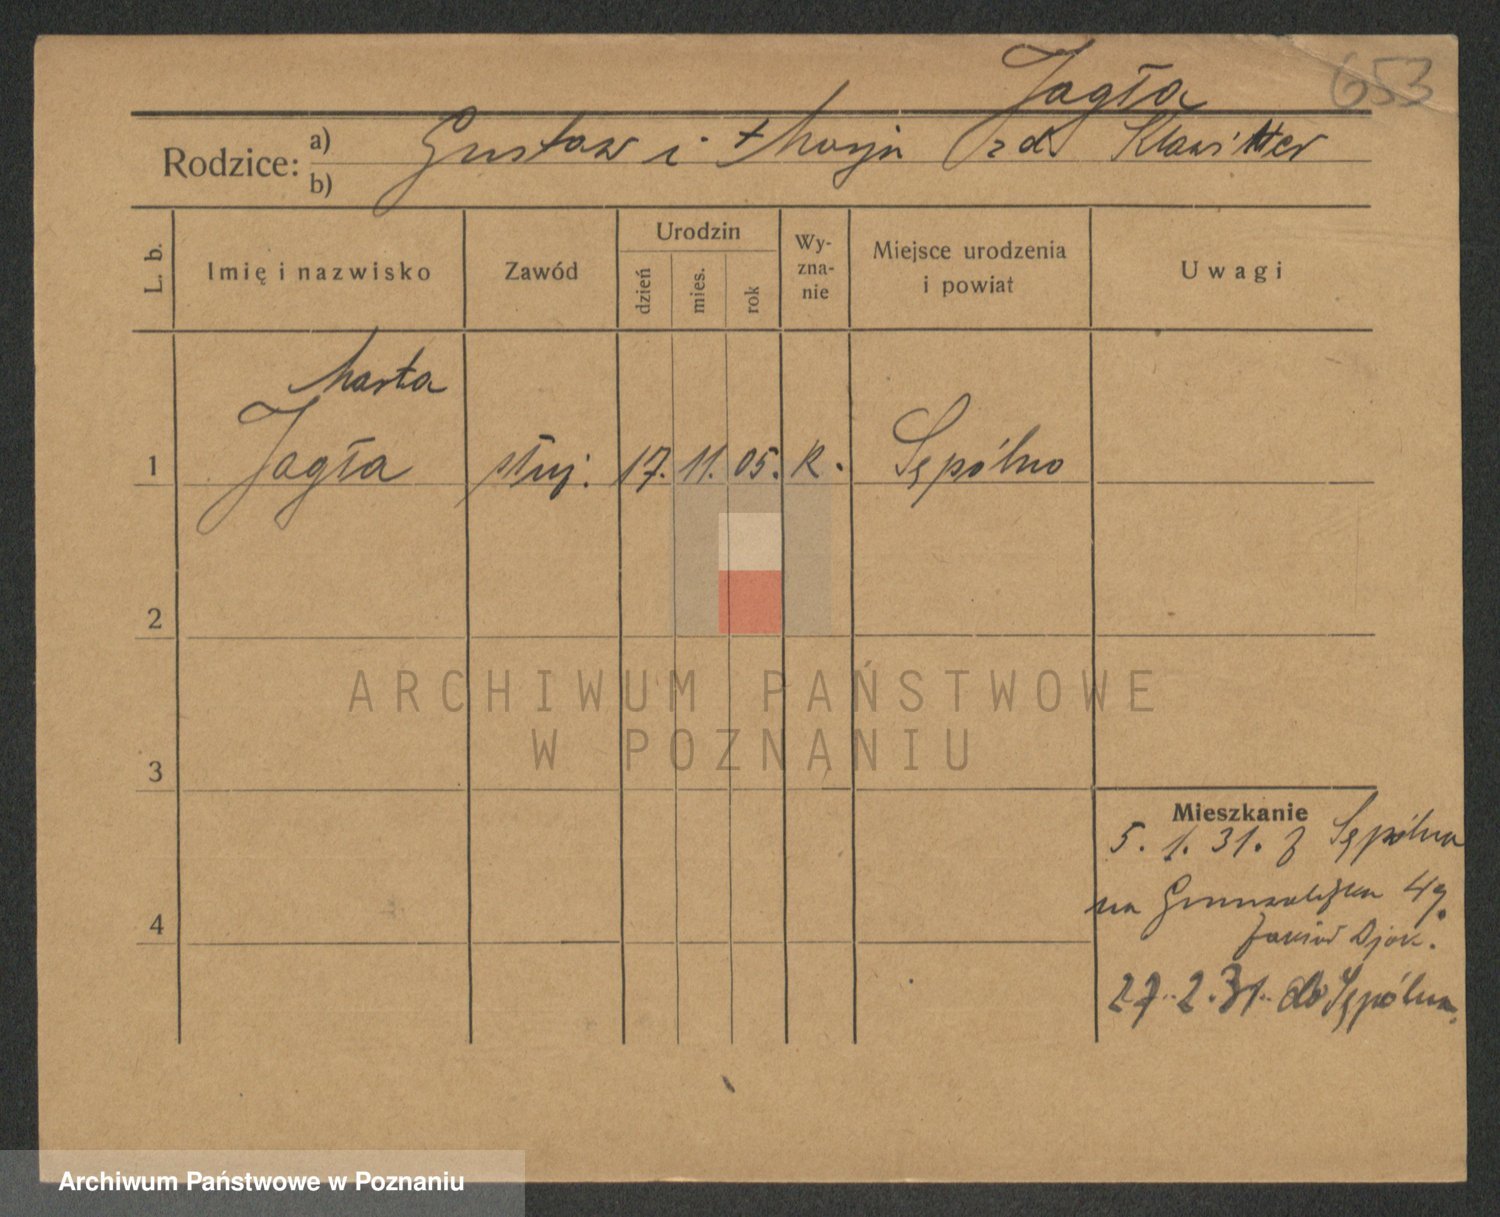 653
Jagła
Rodzice: a) b)
Gustaw i Marja z d. Klawitter
L. b. Imię i nazwisko Zawód Urodzin dzień mies. rok Wyznanie Miejsce urodzenia i powiat Uwagi
Marta
1 Jagła służ. 17. 11. 05. K. Sępólno
2
ARCHIWUM PAŃSTWOWE
W POZNANIU
3
Mieszkanie
5. 1. 31. z Sępólna
na 49.
4
27. 2. 31. do Sępólna.
Archiwum Państwowe w Poznaniu